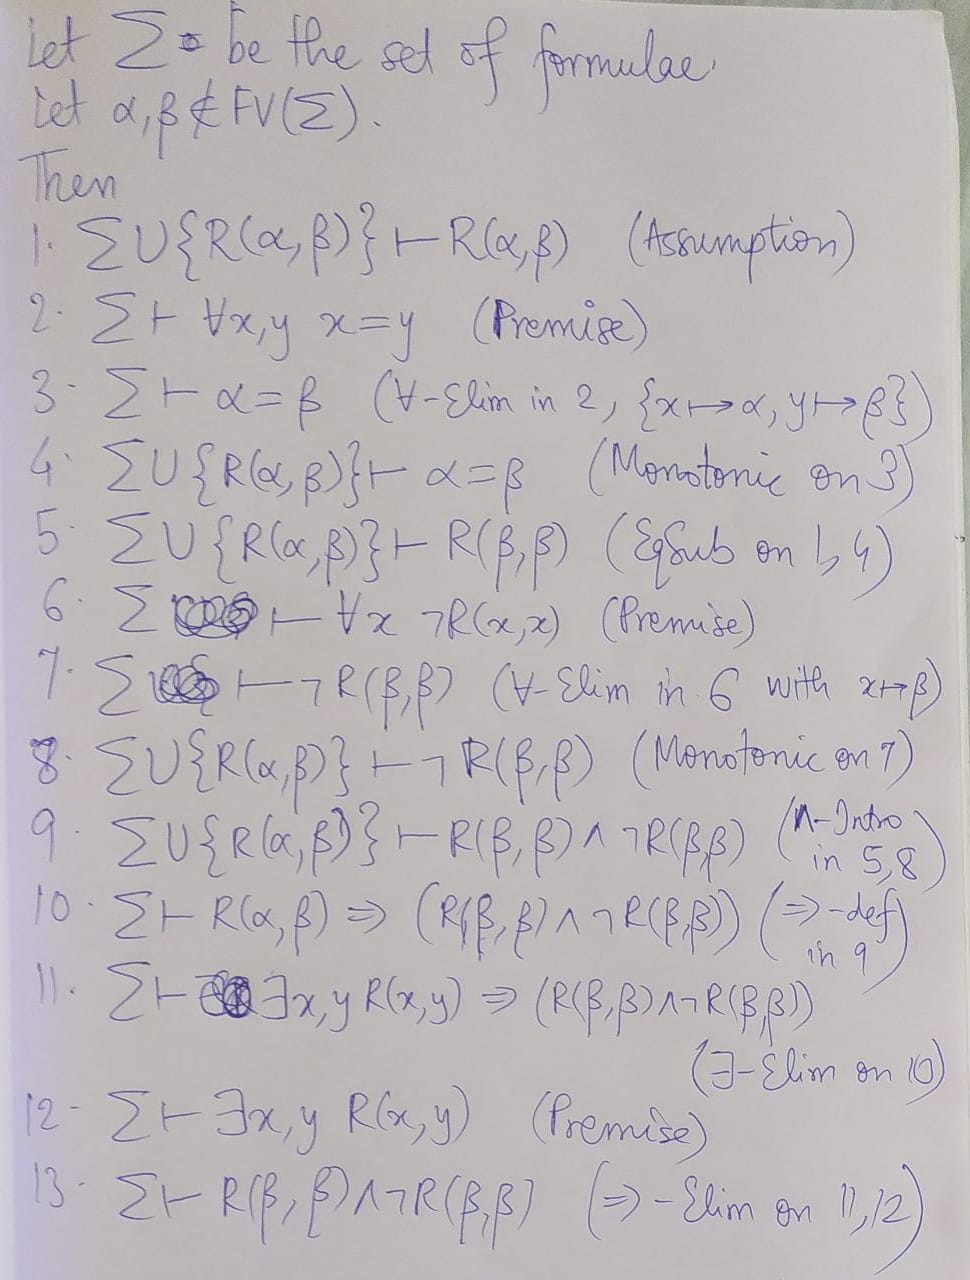 Let Σ be the set of formulae.
Let α, β ∉ FV(Σ).
Then
1. Σ∪{R(α, β)} ⊢ R(α, β) (Assumption)
2. Σ ⊢ ∀x,y x=y (Premise)
3. Σ ⊢ α=β (∀-Elim in 2, {x↦α, y↦β})
4. Σ∪{R(α, β)} ⊢ α=β (Monotonic on 3)
5. Σ∪{R(α, β)} ⊢ R(β, β) (EqSub on 1, 4)
6. Σ ⊢ ∀x ¬R(x,x) (Premise)
7. Σ ⊢ ¬R(β,β) (∀-Elim in 6 with x↦β)
8. Σ∪{R(α,β)} ⊢ ¬R(β,β) (Monotonic on 7)
9. Σ∪{R(α,β)} ⊢ R(β,β)∧¬R(β,β) (∧-Intro
in 5,8)
10. Σ ⊢ R(α,β) ⇒ (R(β,β)∧¬R(β,β)) (⇒-def
in 9)
11. Σ ⊢ ∃x,y R(x,y) ⇒ (R(β,β)∧¬R(β,β))
(∃-Elim on 10)
12- Σ ⊢ ∃x,y R(x,y) (Premise)
13. Σ ⊢ R(β,β)∧¬R(β,β) (⇒-Elim on 11,12)